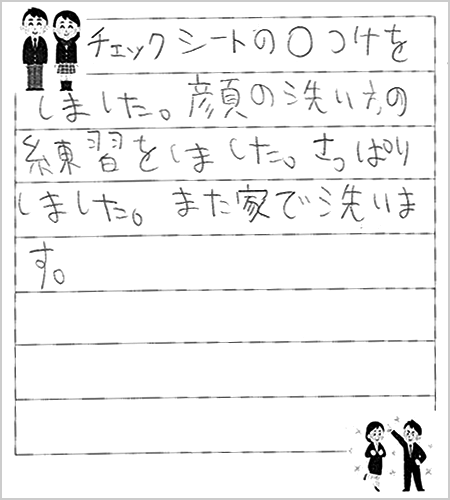 チェックシートの○つけを
しました。顔の洗い方の
練習をしました。さっぱり
しました。また家で洗いま
す。